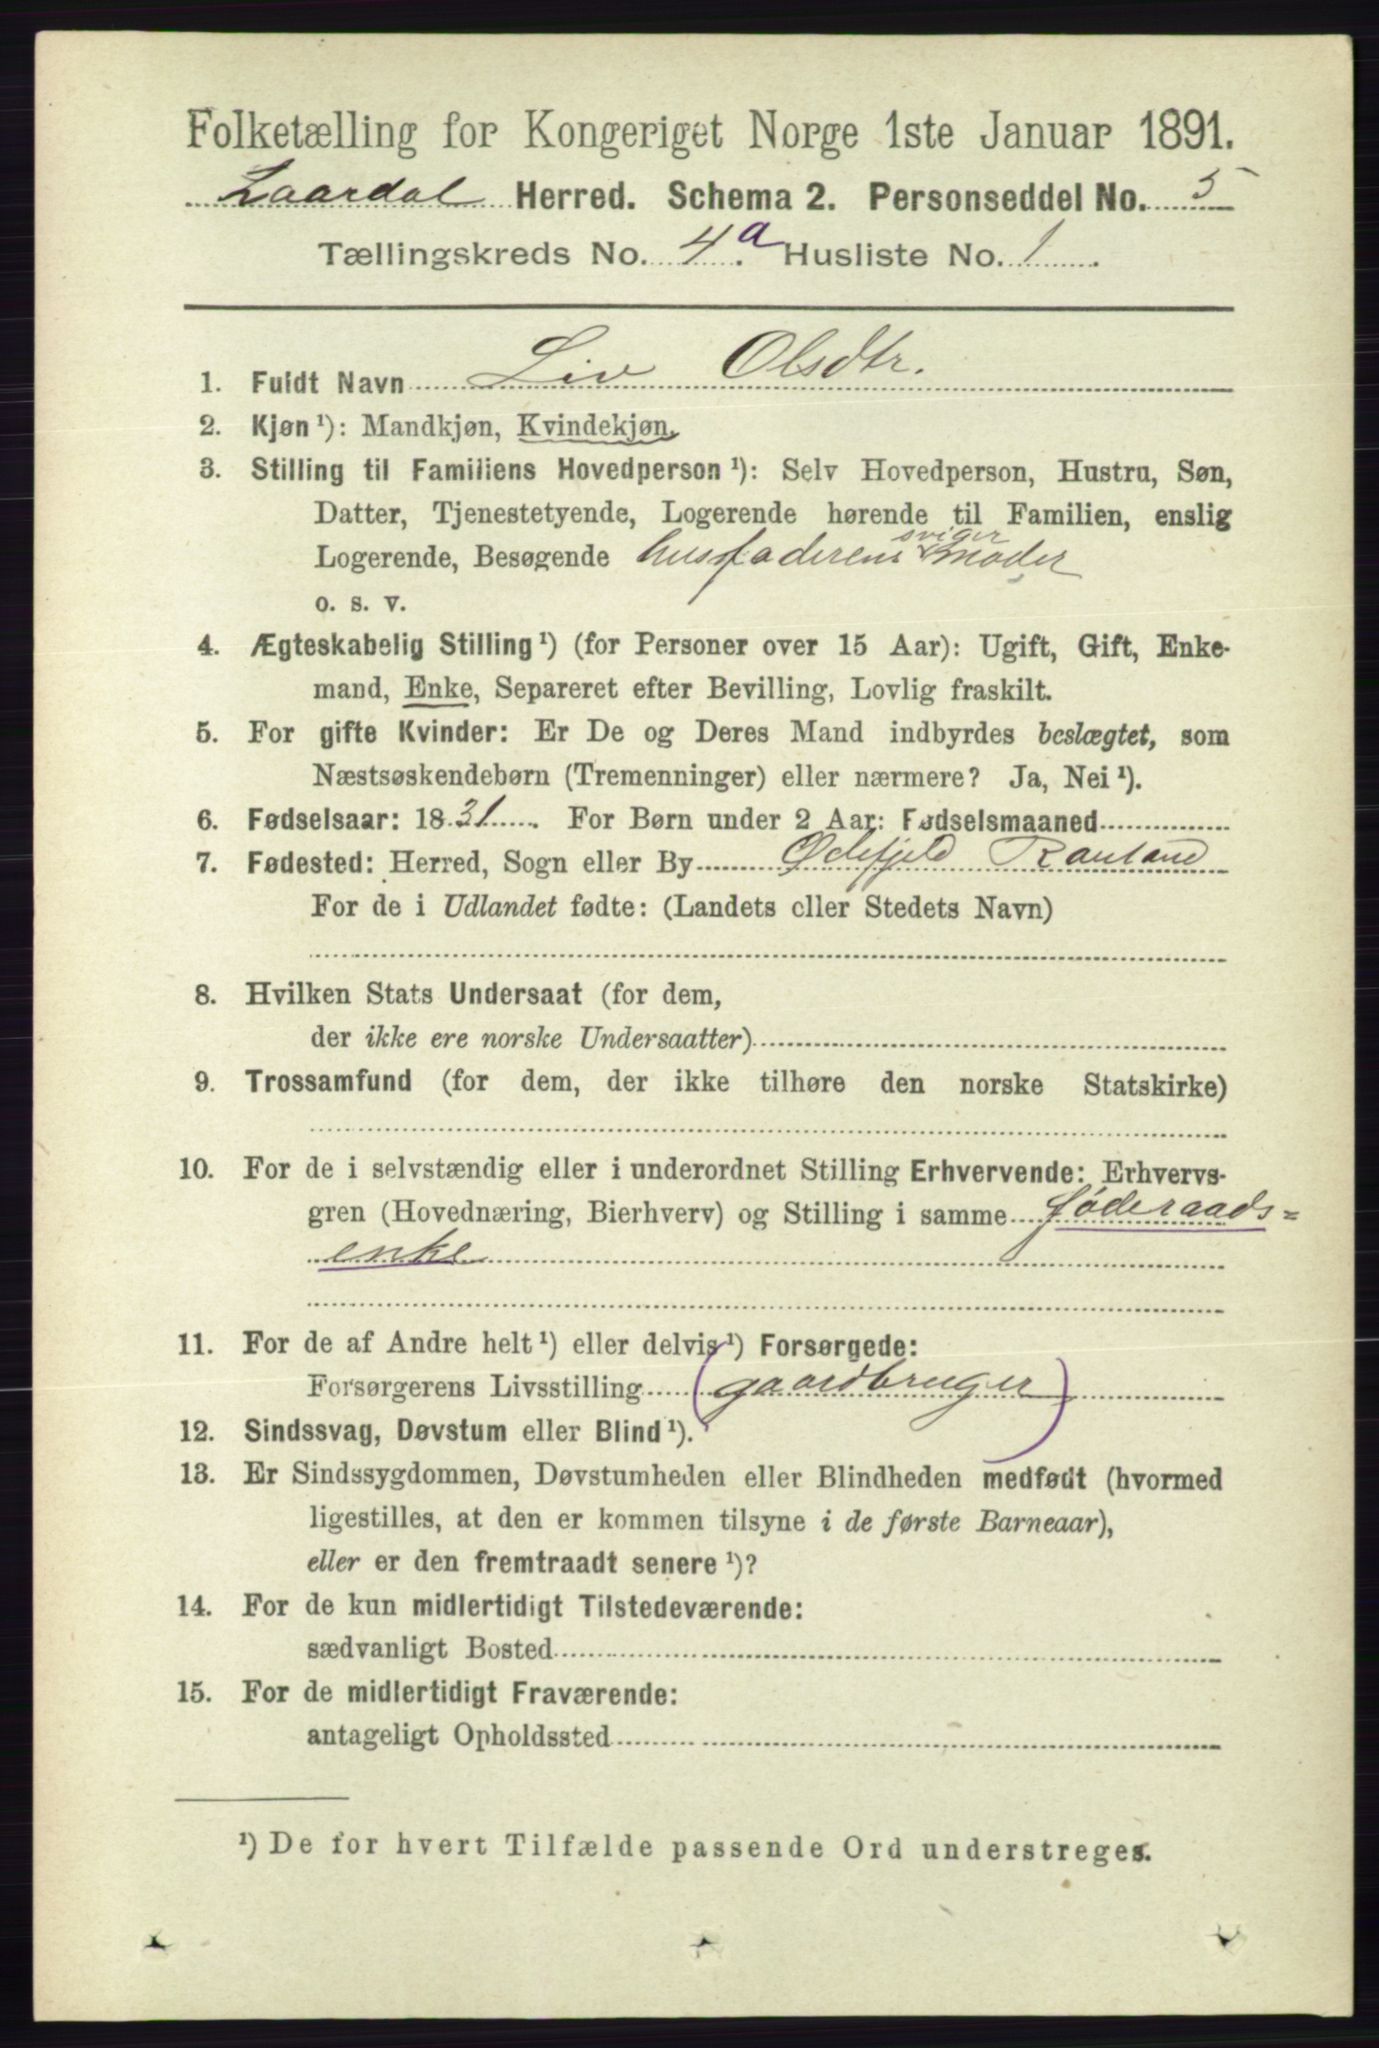 Folketælling for Kongeriget Norge 1ste Januar 1891.
Laardal Herred. Schema 2. Personseddel No. 5
Tællingskreds No. 4a. Husliste No. 1
1. Fuldt Navn Liv Olsdtr.
2. Kjøn ¹): Mandkjøn, Kvindekjøn.
3. Stilling til Familiens Hovedperson ¹): Selv Hovedperson, Hustru, Søn,
Datter, Tjenestetyende, Logerende hørende til Familien, enslig
sviger
Logerende, Besøgende husfaderens moder
o. s. v.
4. Ægteskabelig Stilling ¹) (for Personer over 15 Aar): Ugift, Gift, Enke-
mand, Enke, Separeret efter Bevilling, Lovlig fraskilt.
5. For gifte Kvinder: Er De og Deres Mand indbyrdes beslægtet, som
Næstsøskendebørn (Tremenninger) eller nærmere? Ja, Nei ¹).
6. Fødselsaar: 1831. For Børn under 2 Aar: Fødselsmaaned
7. Fødested: Herred, Sogn eller By Rauland
For de i Udlandet fødte: (Landets eller Stedets Navn)
8. Hvilken Stats Undersaat (for dem,
der ikke ere norske Undersaatter)
9. Trossamfund (for dem, der ikke tilhøre den norske Statskirke)
10. For de i selvstændig eller i underordnet Stilling Erhvervende: Erhvervs-
gren (Hovednæring, Bierhverv) og Stilling i samme föderaads=
enke
11. For de af Andre helt ¹) eller delvis ¹) Forsørgede:
Forsørgerens Livsstilling (gaardbruger)
12. Sindssvag, Døvstum eller Blind ¹).
13. Er Sindssygdommen, Døvstumheden eller Blindheden medfødt (hvormed
ligestilles, at den er kommen tilsyne i de første Barneaar),
eller er den fremtraadt senere ¹)?
14. For de kun midlertidigt Tilstedeværende:
sædvanligt Bosted
15. For de midlertidigt Fraværende:
antageligt Opholdssted
¹) De for hvert Tilfælde passende Ord understreges.